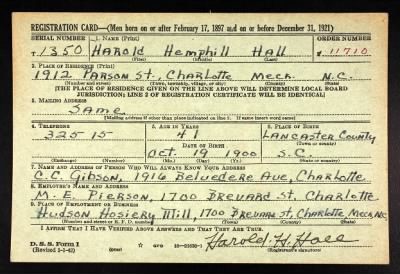 REGISTRATION CARD—(Men born on or after February 17, 1897 and on or before December 31, 1921)
SERIAL NUMBER 1. NAME (Print) ORDER NUMBER
T 1350 Harold Hemphill Hall 11710
(First) (Middle) (Last)
2. PLACE OF RESIDENCE (Print)
1912 Parson St., Charlotte Meck. N.C.
(Number and street) (Town, township, village, or city) (County) (State)
[THE PLACE OF RESIDENCE GIVEN ON THE LINE ABOVE WILL DETERMINE LOCAL BOARD
JURISDICTION; LINE 2 OF REGISTRATION CERTIFICATE WILL BE IDENTICAL]
3. MAILING ADDRESS
Same
[Mailing address if other than place indicated on line 2. If same insert word same]
4. TELEPHONE 5. AGE IN YEARS 6. PLACE OF BIRTH
32515 41 Lancaster County
DATE OF BIRTH (Town or county)
Oct. 19 1900 S.C.
(Exchange) (Number) (Mo.) (Day) (Yr.) (State or country)
7. NAME AND ADDRESS OF PERSON WHO WILL ALWAYS KNOW YOUR ADDRESS
C.C. Gibson, 1916 Belvedere Ave, Charlotte
8. EMPLOYER'S NAME AND ADDRESS
M. E. Pierson, 1700 Brevard St, Charlotte
9. PLACE OF EMPLOYMENT OR BUSINESS
Hudson Hosiery Mill, 1700 Brevard St, Charlotte, Meck, N.C.
(Number and street or R. F. D. number) (Town) (County) (State)
I AFFIRM THAT I HAVE VERIFIED ABOVE ANSWERS AND THAT THEY ARE TRUE.
D. S. S. Form 1
(Revised 1-1-42) GPO Harold H. Hall
(Registrant's signature)